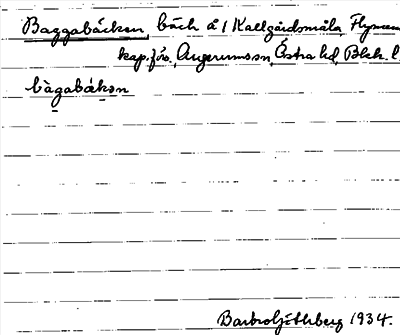 Baggabäcken, bäck å 1 Kallgårdsmåla, Flymen
kap.förs., Augerums sn, Östra hd, Blek. l.
bàgabákən
Barbro 1934.